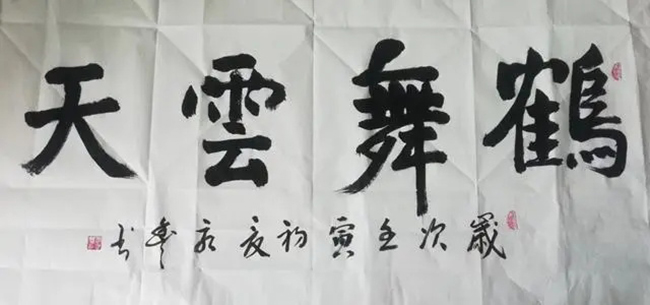 鶴舞雲天
歲次壬寅初夏永書